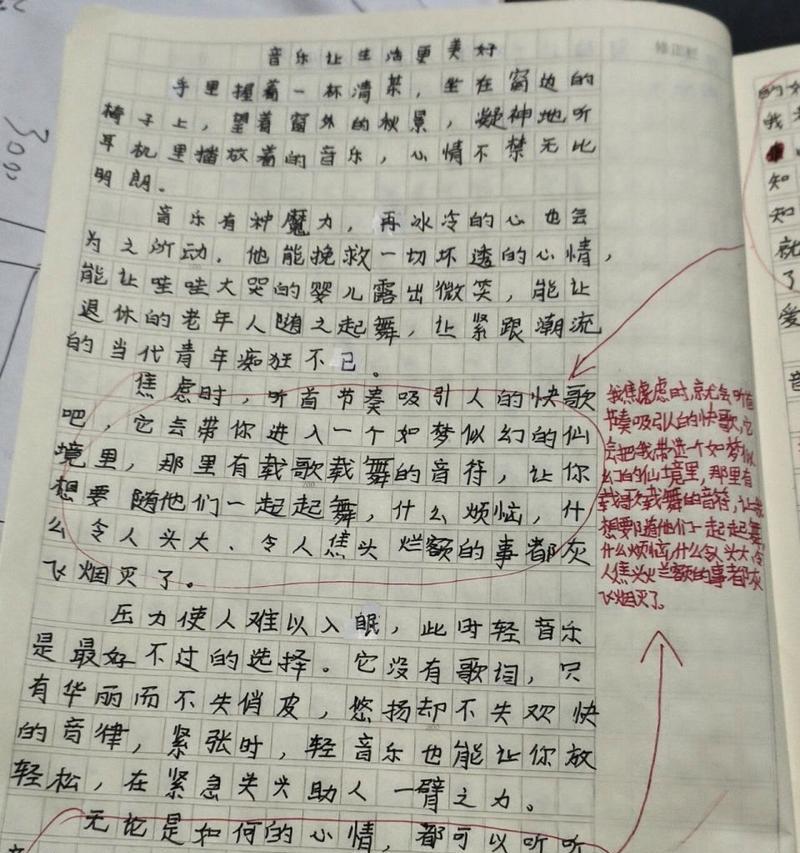 音乐让生活更美好
手里握着一杯清茶，坐在窗边的
椅子上，望着窗外的秋景，凝神地听
耳机里播放着的音乐，心情不禁无比
明朗。
音乐有种魔力，再冰冷的心也会
为之所动．他能挽救一切坏透的心情，
能让哇哇大哭的婴儿露出微笑，能让
退休的老年人随之起舞，让紧跟潮流
的当代青年痴狂不已。
焦虑时，听首节奏吸引人的快歌
吧，它会带你进入一个如梦似幻的仙
境里，那里有载歌载舞的音符，让你
想要随他们一起起舞，什么烦恼，什
么令人头大、令人焦头烂额的事都灰
飞烟灭了。
压力使人难以入眠，此时轻音乐
是最好不过的选择。它没有歌词，只
有华丽而不失俏皮，悠扬却不失欢快
的音律，紧张时，轻音乐也能让你放
轻松，在紧急关头助人一臂之力。
无论是如何的心情，都可以听听
我焦虑时，就会听首
节奏吸引人的快歌，它
会把我带进个如梦似
幻的仙境里，那里有
载歌载舞的音符，让我
想要随他们一起起舞
什么烦恼，什么令人头大，令
人焦头烂额的事都灰
飞烟灭了。
300
的
我
知
知
就
了
爱
音